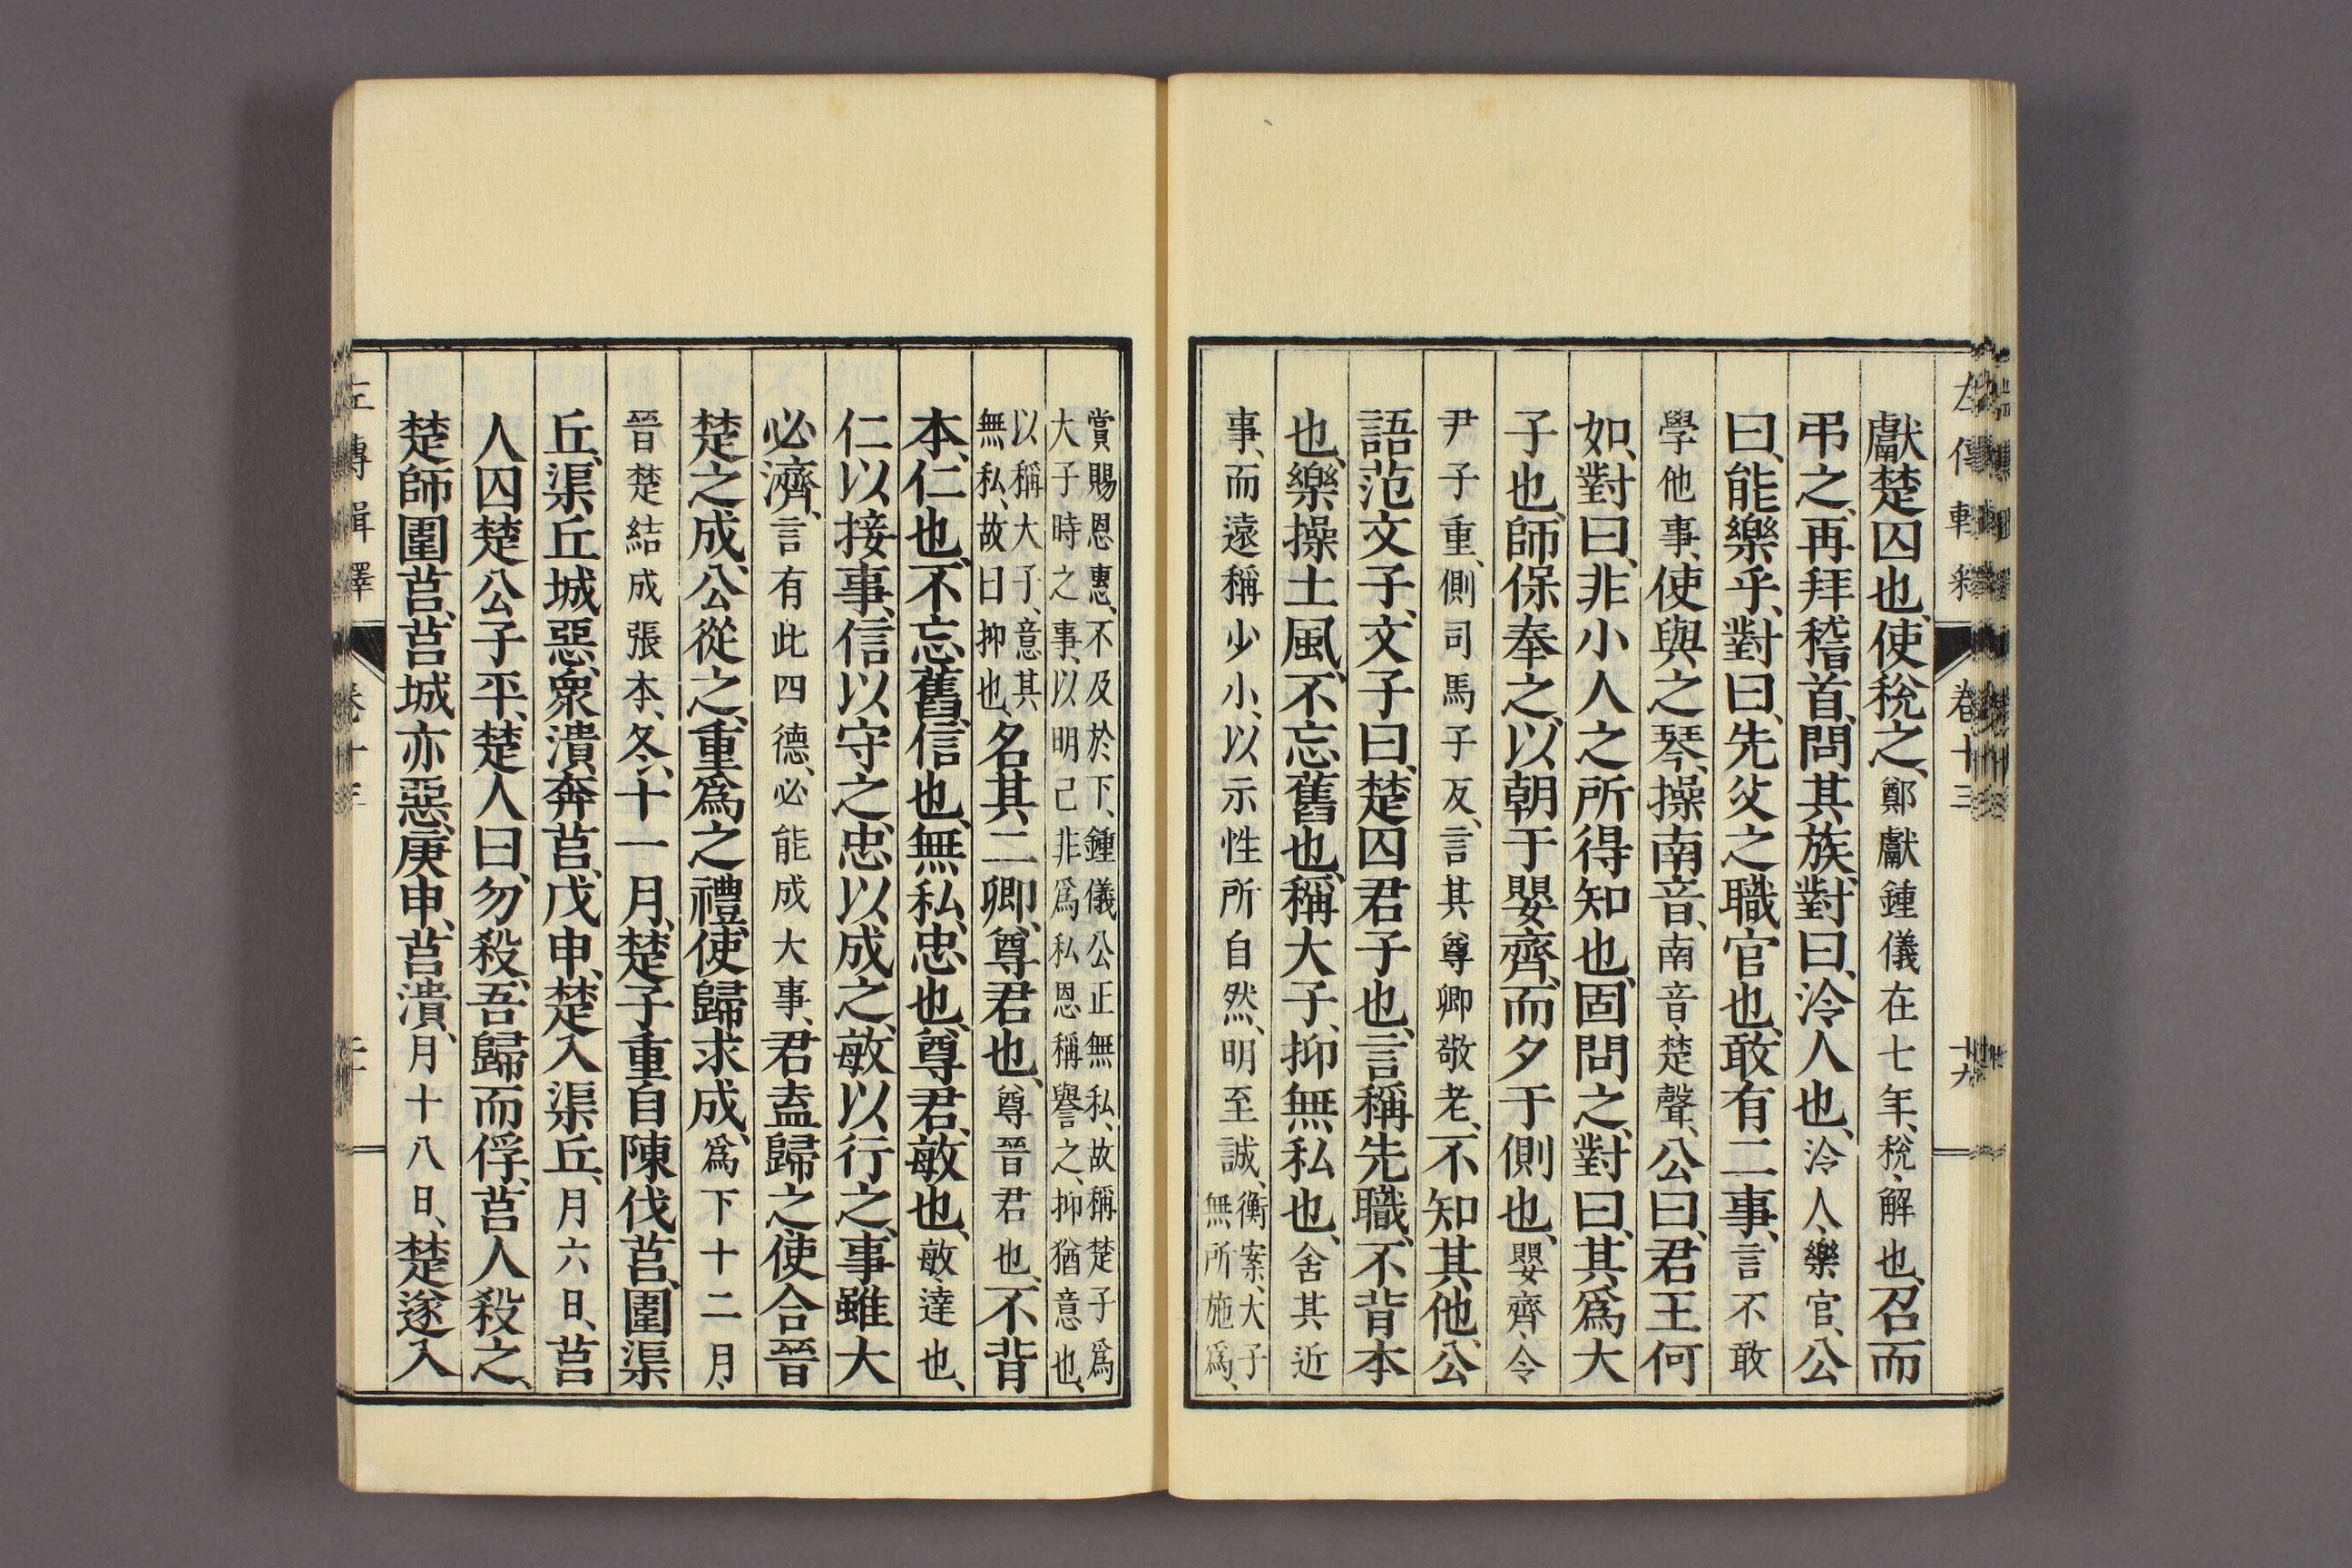 獻楚囚也、使稅之、鄭獻鍾儀在七年、稅、解也、召而
弔之、再拜稽首、問其族、對曰、泠人也、泠人、樂官、公
曰、能樂乎、對曰、先父之職官也、敢有二事、言不敢
學他事、使與之琴、操南音、南音、楚聲、公曰、君王何
如、對曰、非小人之所得知也、固問之、對曰、其爲大
子也、師保奉之、以朝于嬰齊、而夕于側也、嬰齊、令
尹子重、側司馬子反、言其尊卿敬老、不知其他、公
語范文子、文子曰、楚囚君子也、言稱先職、不背本
也、樂操土風、不忘舊也、稱大子、抑無私也、舍其近
事、而遠稱少小、以示性所自然、明至誠、衡案、大子
無所施爲、
賞賜恩惠、不及於下、鍾儀公正無私、故稱楚子爲
大子時之事、以明己非爲私恩稱譽之、抑猶意也、
以稱大子、意其
無私、故曰抑也、名其二卿、尊君也、尊晉君也、不背
本、仁也、不忘舊、信也、無私、忠也、尊君、敏也、敏、達也、
仁以接事、信以守之、忠以成之、敏以行之、事雖大
必濟、言有此四德、必能成大事、君盍歸之、使合晉
楚之成、公從之、重爲之禮、使歸求成、爲下十二月、
晉楚結成張本、冬、十一月、楚子重自陳伐莒、圍渠
丘、渠丘城惡、衆潰、奔莒、戊申、楚入渠丘、月六日、莒
人囚楚公子平、楚人曰、勿殺、吾歸而俘、莒人殺之、
楚師圍莒、莒城亦惡、庚申、莒潰、月十八日、楚遂入
左傳輯釋 卷十三 十九